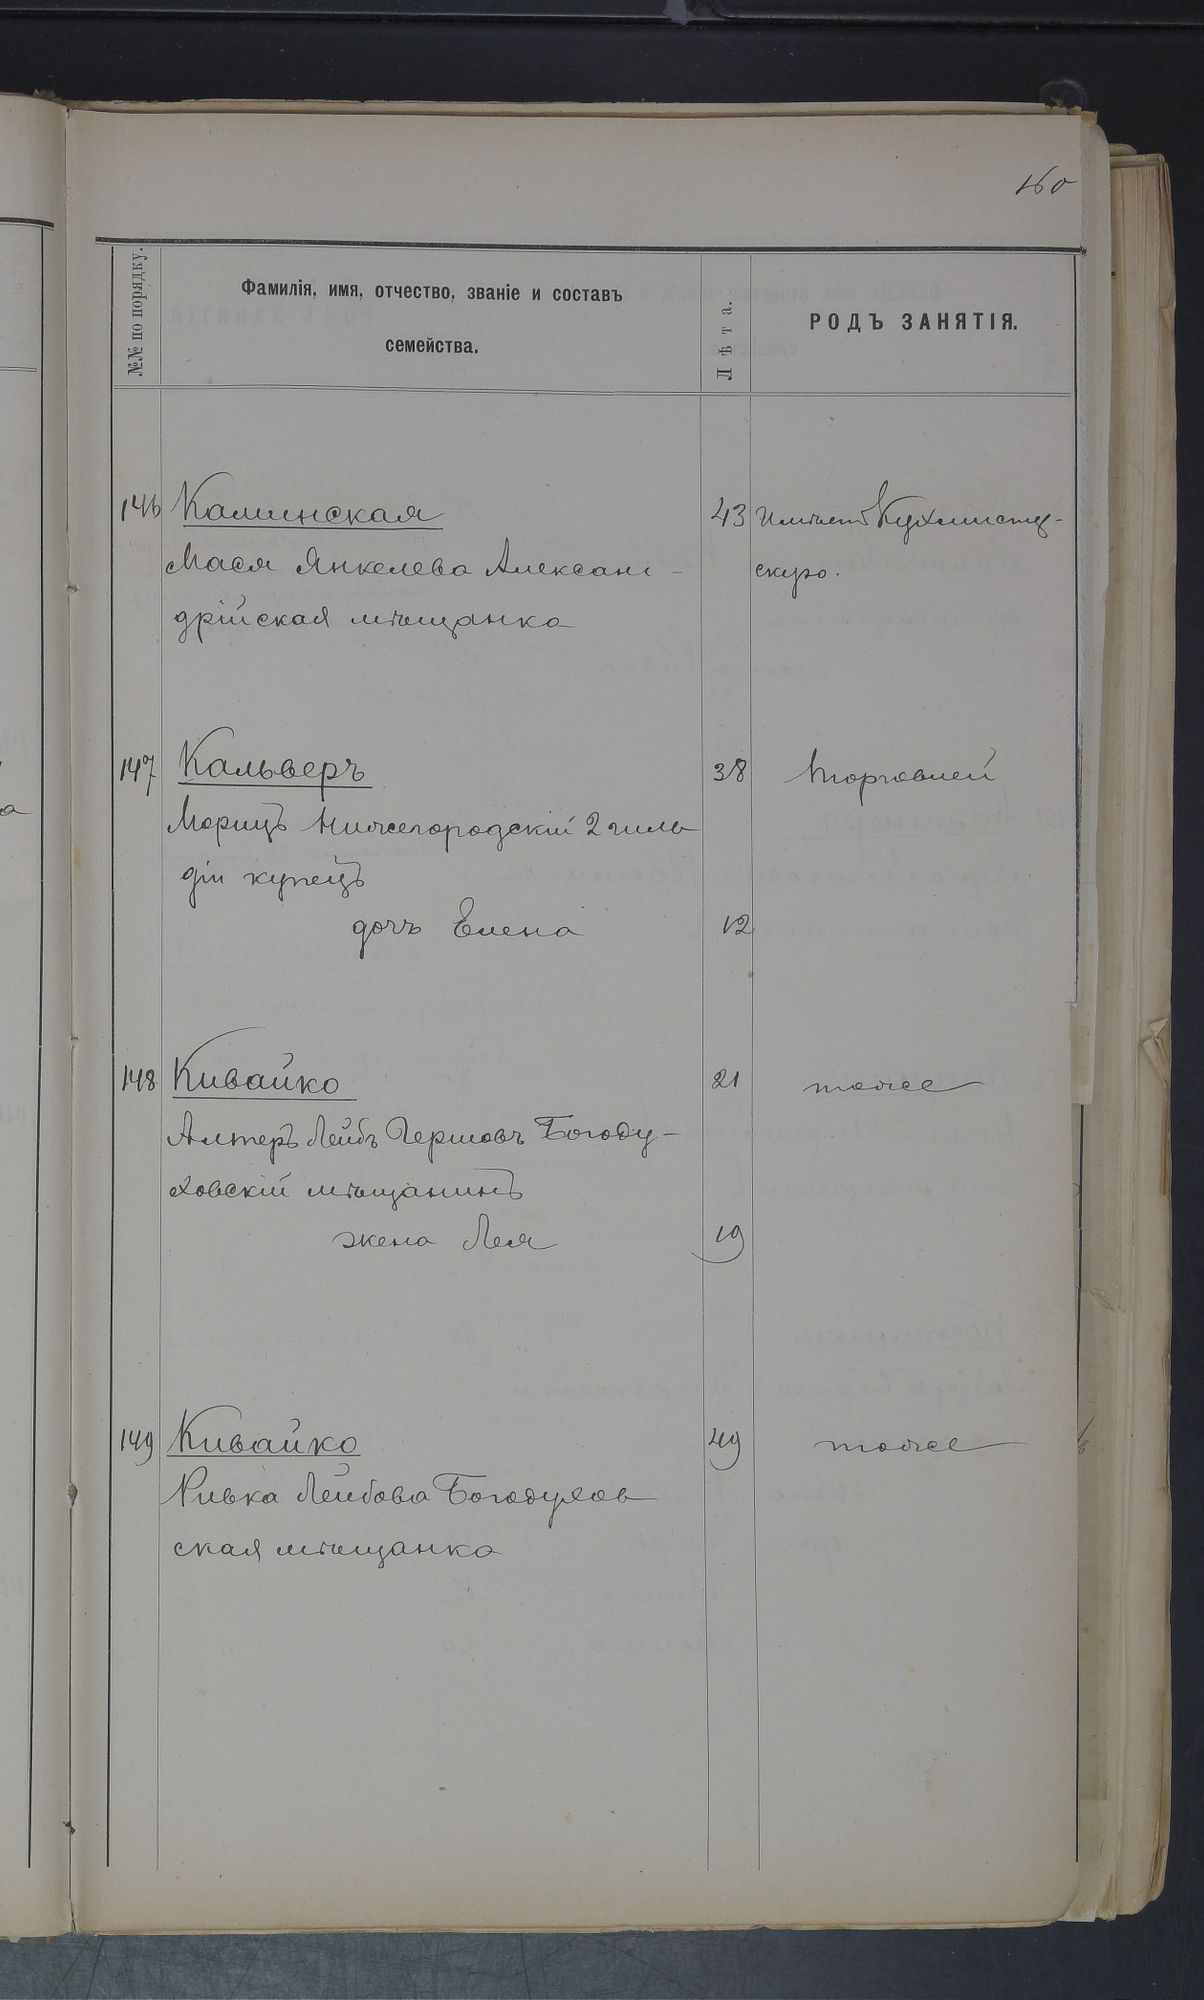 160
№№ по порядку.
Фамилія, имя, отчество, званіе и составъ
семейства.
Лѣта.
РОДЪ ЗАНЯТІЯ.
146 Каминская 43 Имѣетъ Кухмистер-
Мася Янкелева Алексан- скую.
дрійская мѣщанка
147 Кальверъ 38 Торговлей
Морицъ Нижегородскій 2 гиль
діи купецъ
дочь Елена 12
148 Кивайко 21 тоже
Алтеръ Лейбъ Гершовъ Богоду-
ховскій мѣщанинъ
жена Лея 19
149 Кивайко 49 тоже
Ривка Лейбова Богодухов
ская мѣщанка